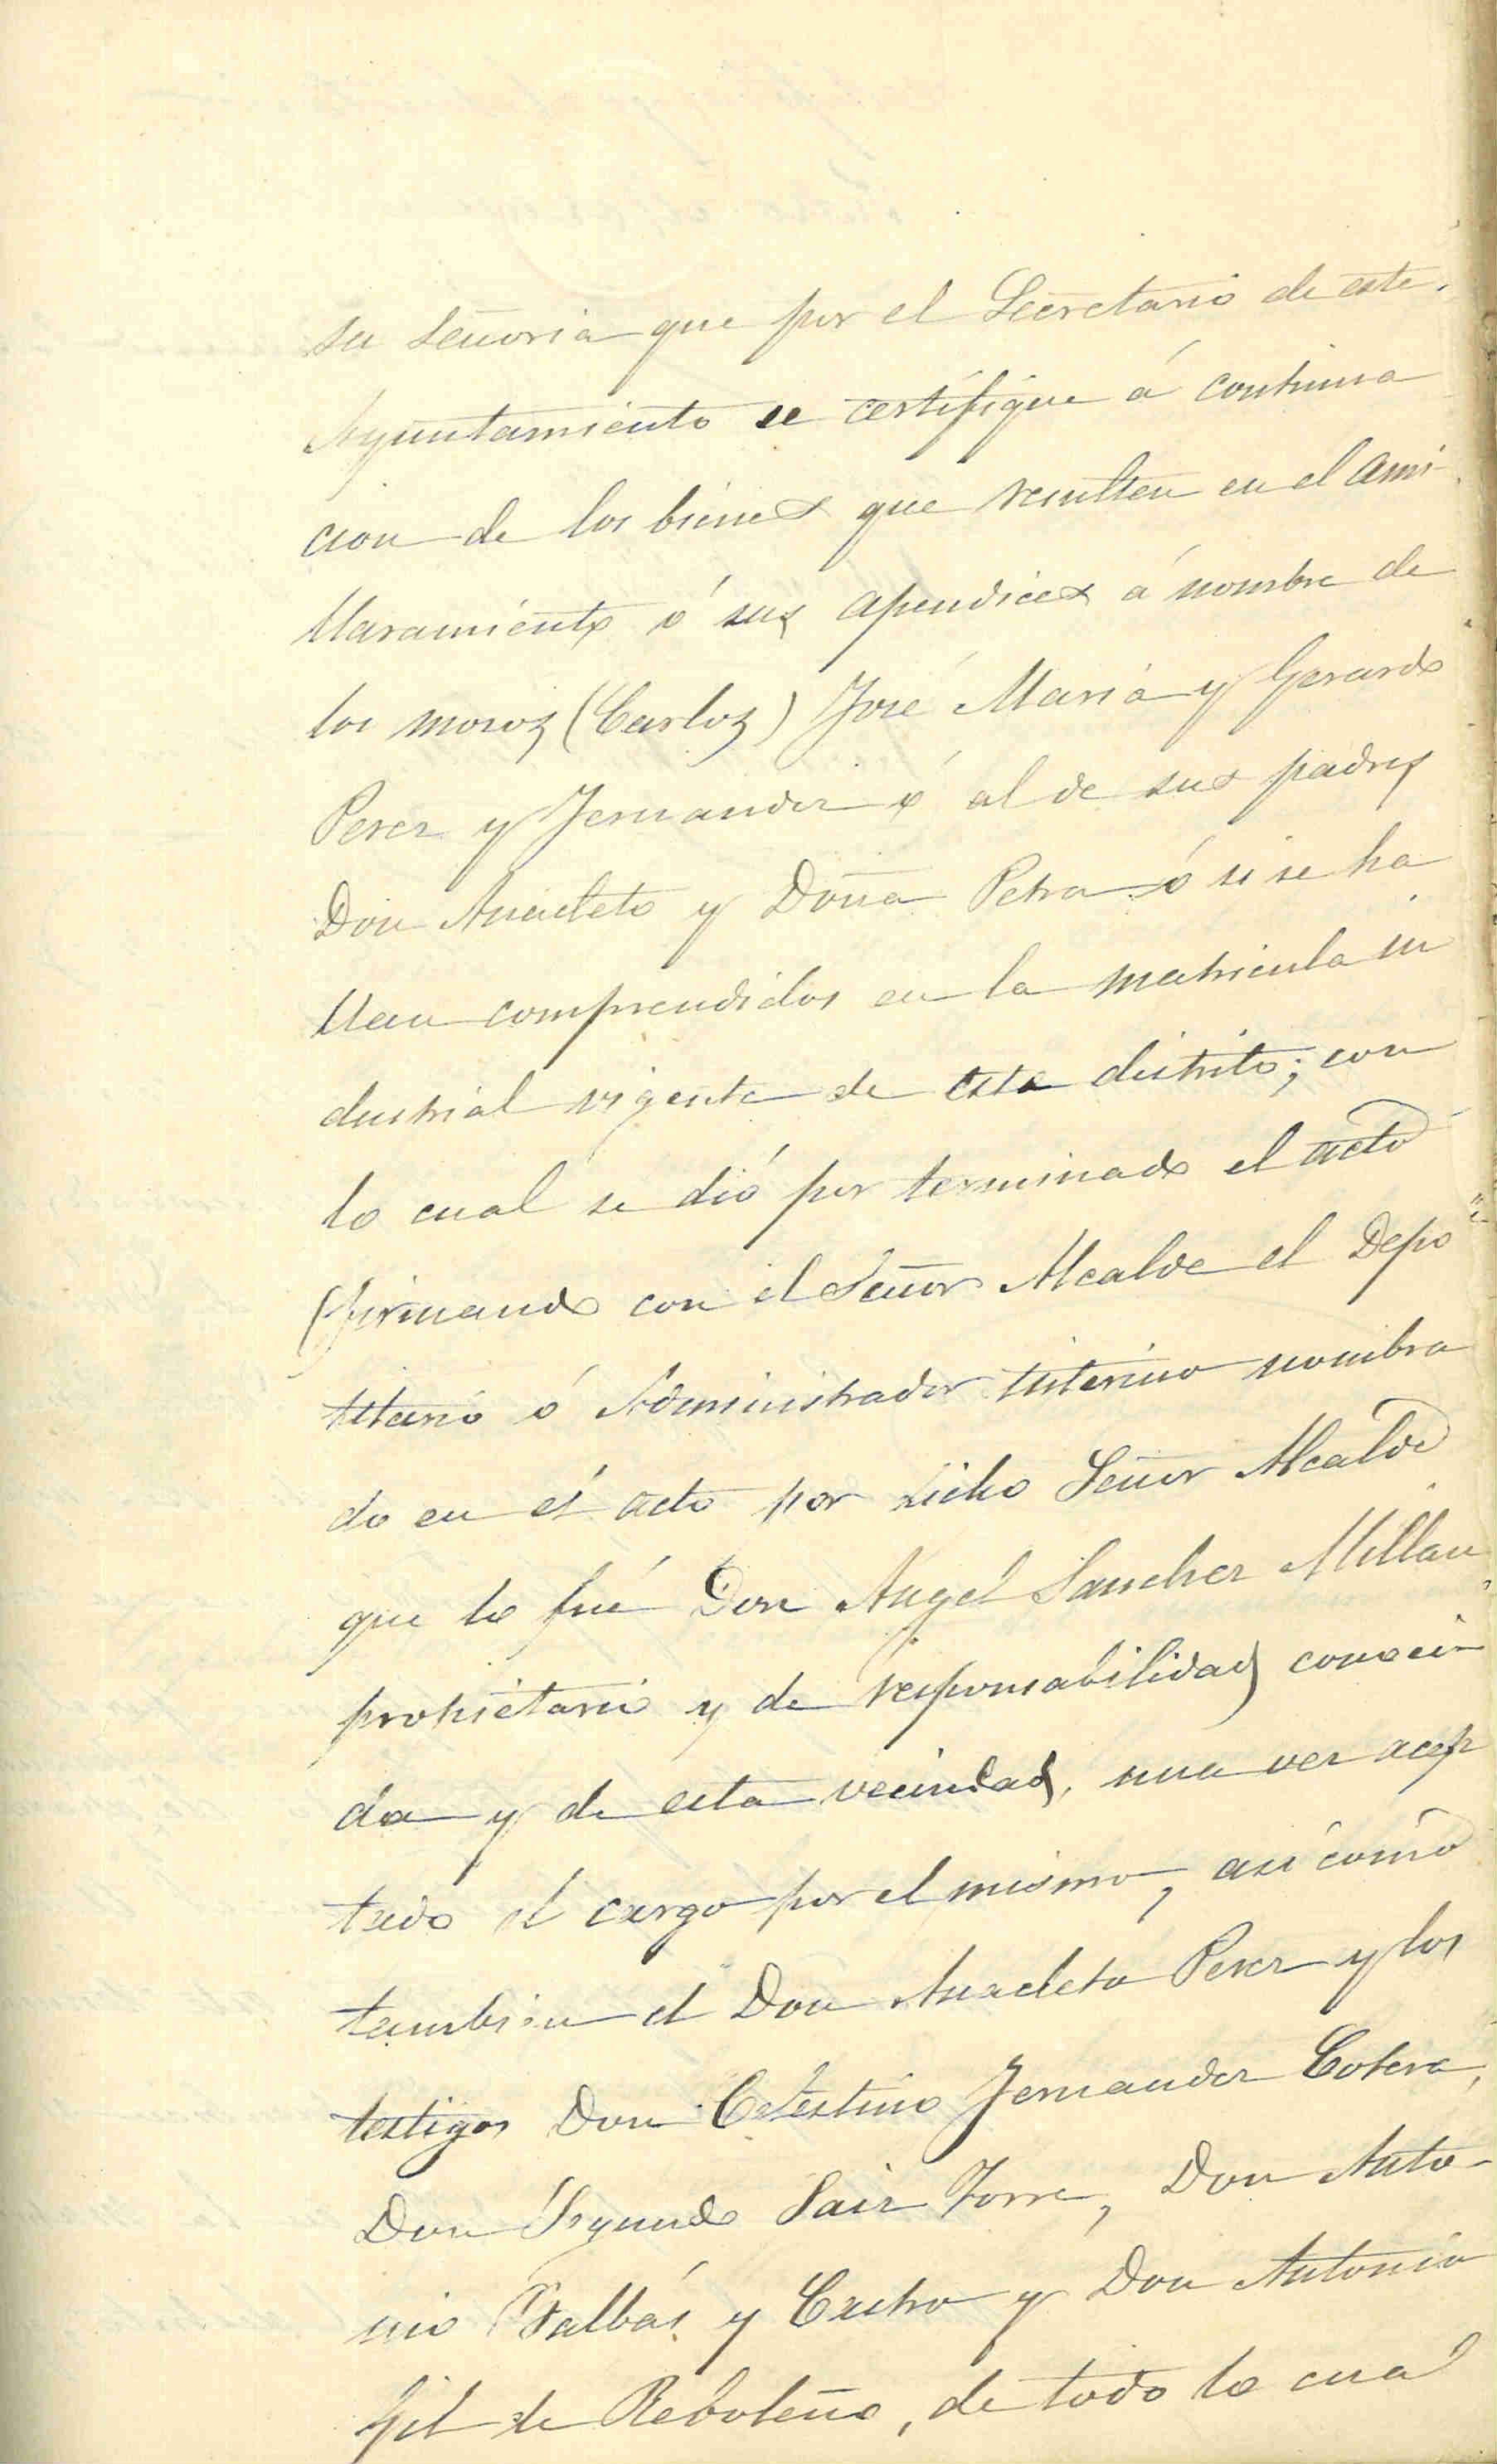 su Señoria que por el Secretario de este
Ayuntamiento se certifique á continua
cion de los bienes que resulten en el ami
llaramiento ó sus apendices á nombre de
los mozos (Carlos) José Maria y Gerardo
Perez y Fernandez ó al de sus padres
Don Anacleto y Doña Petra ó si se ha
llan comprendidos en la matricula in
dustrial vigente de este distrito; con
lo cual se dió por terminado el acto
firmando con el Señor Alcalde el Depo
sitario ó Administrador interino nombra
do en el acto por dicho Señor Alcalde
que lo fué Don Angel Sanchez Millan
propietario y de responsabilidad conoci
da y de esta vecindad, una vez acep
tado el cargo por el mismo, asi como
tambien el Don Anacleto Perez y los
testigos Don Celestino Fernandez Cotera,
Don Segundo Saiz Torre, Don Anto-
nio Balbás y Castro y Don Antonio
Gil de Reboleño, de todo lo cual